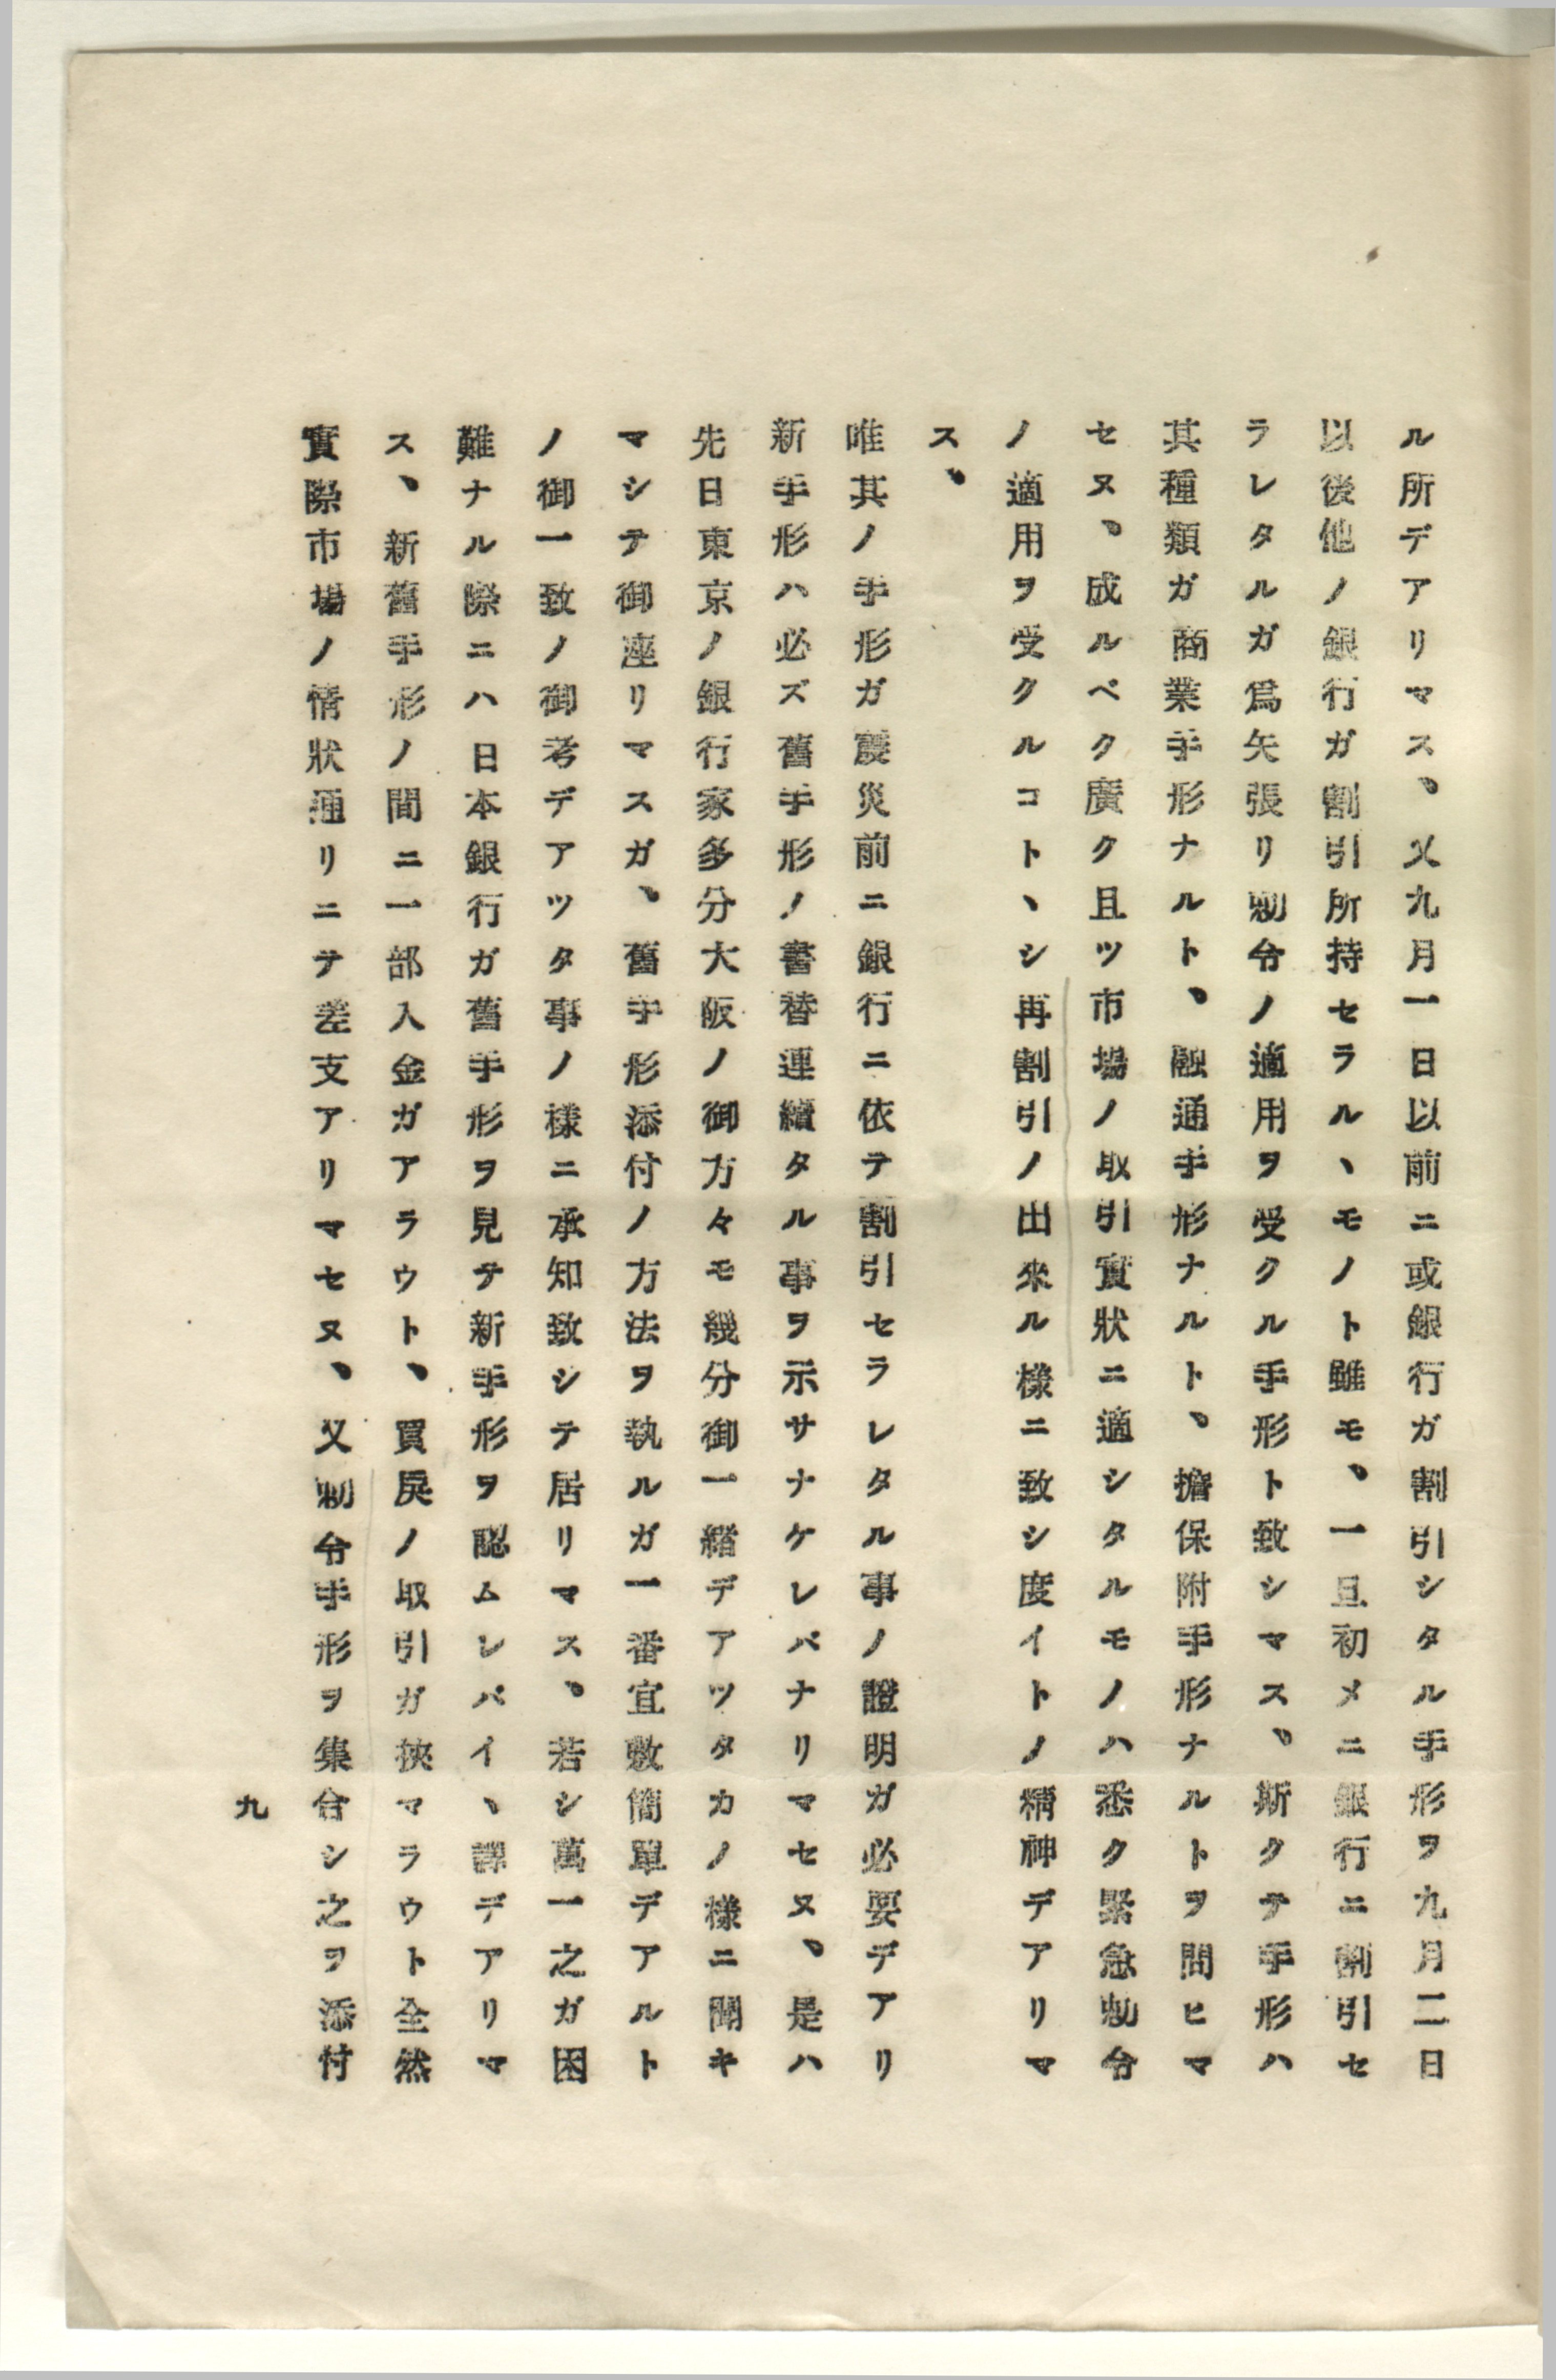 ル所デアリマス、又九月一日以前ニ或銀行ガ割引シタル手形ヲ九月二日
以後他ノ銀行ガ割引所持セラルヽモノト雖モ、一旦初メニ銀行ニ割引セ
ラレタルガ爲矢張リ勅令ノ適用ヲ受クル手形ト致シマス、斯クテ手形ハ
其種類ガ商業手形ナルト、融通手形ナルト、擔保附手形ナルトヲ問ヒマ
セヌ、成ルベク廣ク且ツ市場ノ取引實狀ニ適シタルモノハ悉ク緊急勅令
ノ適用ヲ受クルコトヽシ再割引ノ出來ル樣ニ致シ度イトノ精神デアリマ
ス、
唯其ノ手形ガ震災前ニ銀行ニ依テ割引セラレタル事ノ證明ガ必要デアリ
新手形ハ必ズ舊手形ノ書替連續タル事ヲ示サナケレバナリマセヌ、是ハ
先日東京ノ銀行家多分大阪ノ御方々モ幾分御一緒デアツタカノ樣ニ聞キ
マシテ御座リマスガ、舊手形添付ノ方法ヲ執ルガ一番宜敷簡單デアルト
ノ御一致ノ御考デアツタ事ノ樣ニ承知致シテ居リマス、若シ萬一之ガ困
難ナル際ニハ日本銀行ガ舊手形ヲ見テ新手形ヲ認ムレバイヽ譯デアリマ
ス、新舊手形ノ間ニ一部入金ガアラウト、買戾ノ取引ガ挾マラウト全然
實際市場ノ情狀通リニテ差支アリマセヌ、又勅令手形ヲ集合シ之ヲ添付
九